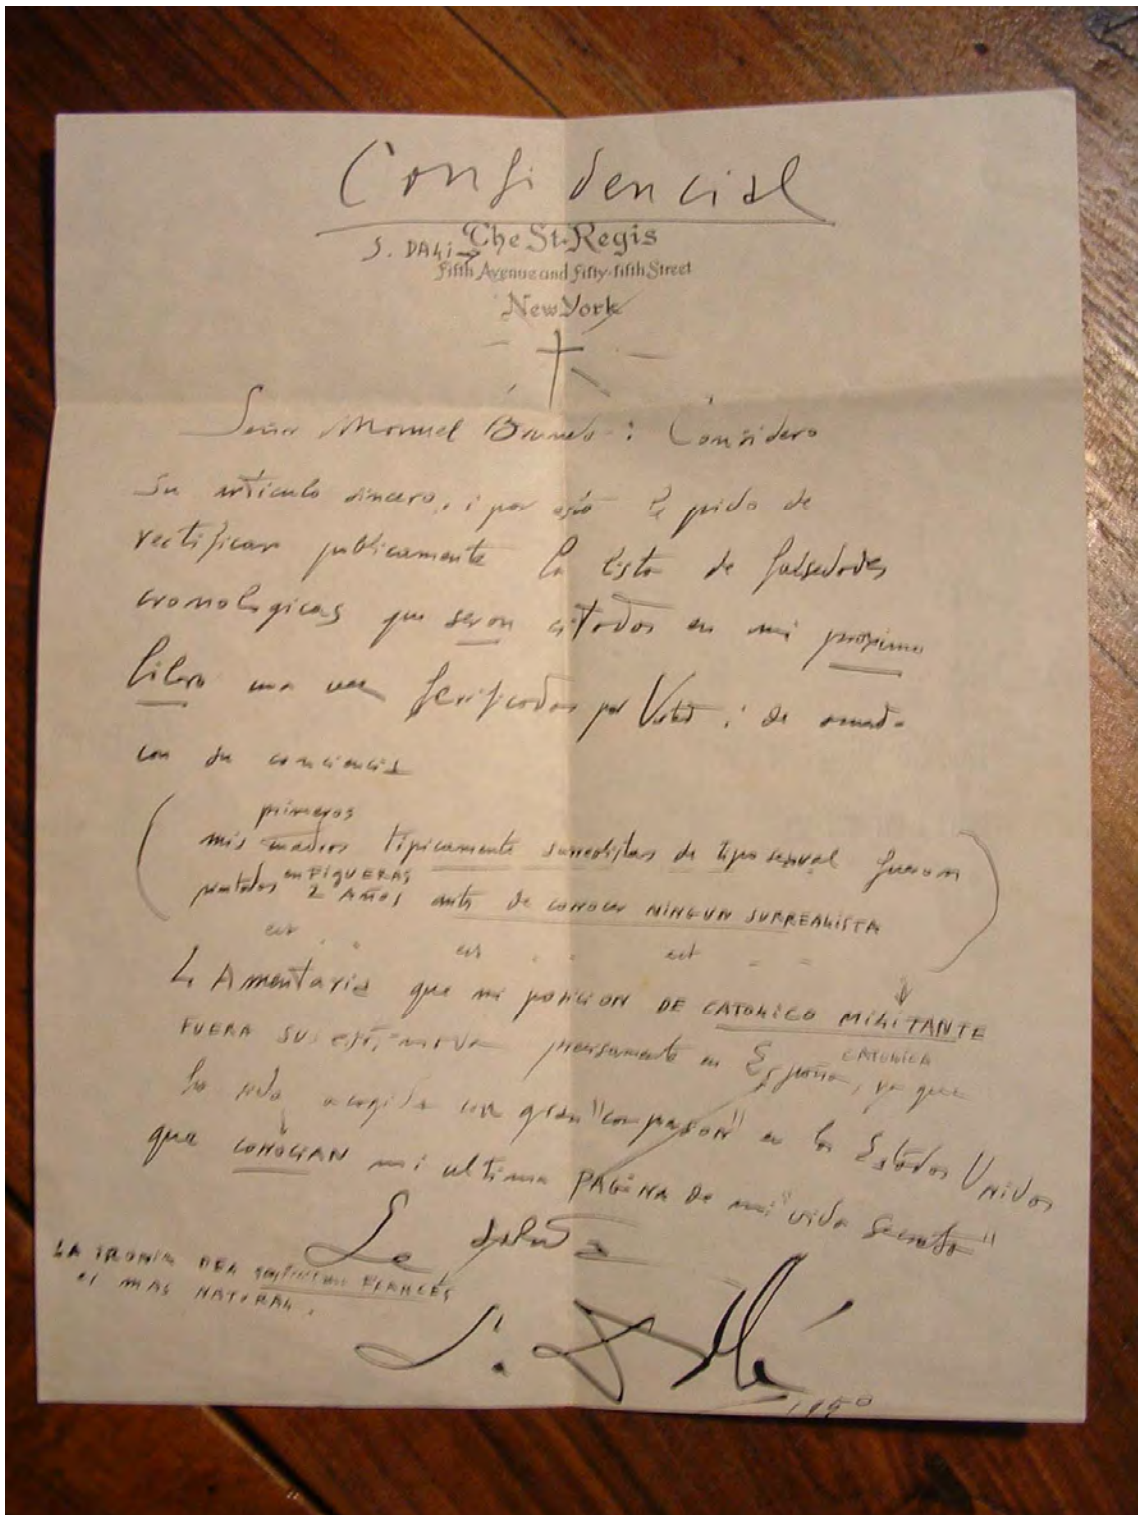 Confidencial
S. DALI
The St. Regis
Fifth Avenue and Fifty-fifth Street
New York
Señor Manuel Brunet : Considero
su articulo sincero, i por esto le pido de
rectificar publicamente la lista de falsedades
cronologicas que seran citadas en mi proximo
libro una vez por Usted i de
con su conciencia
primeros
mis tipicamente surrealistas de tipo sexual fueron
pintados en FIGUERAS 2 AÑOS antes de conocer NINGUN SURREALISTA
ect ect ect
LAmentaria que mi posicion DE CATOLICO MILITANTE
FUERA precisamente en España CATOLICA, ya que
ha sido acogida con gran "compasion" en los Estados Unidos
que CONOCIAN mi ultima PAGINA de mi "vida secreta"
Le saluda
LA IRONIA DEL FRANCÉS
el MAS NATURAL.
S. Dalí
1950